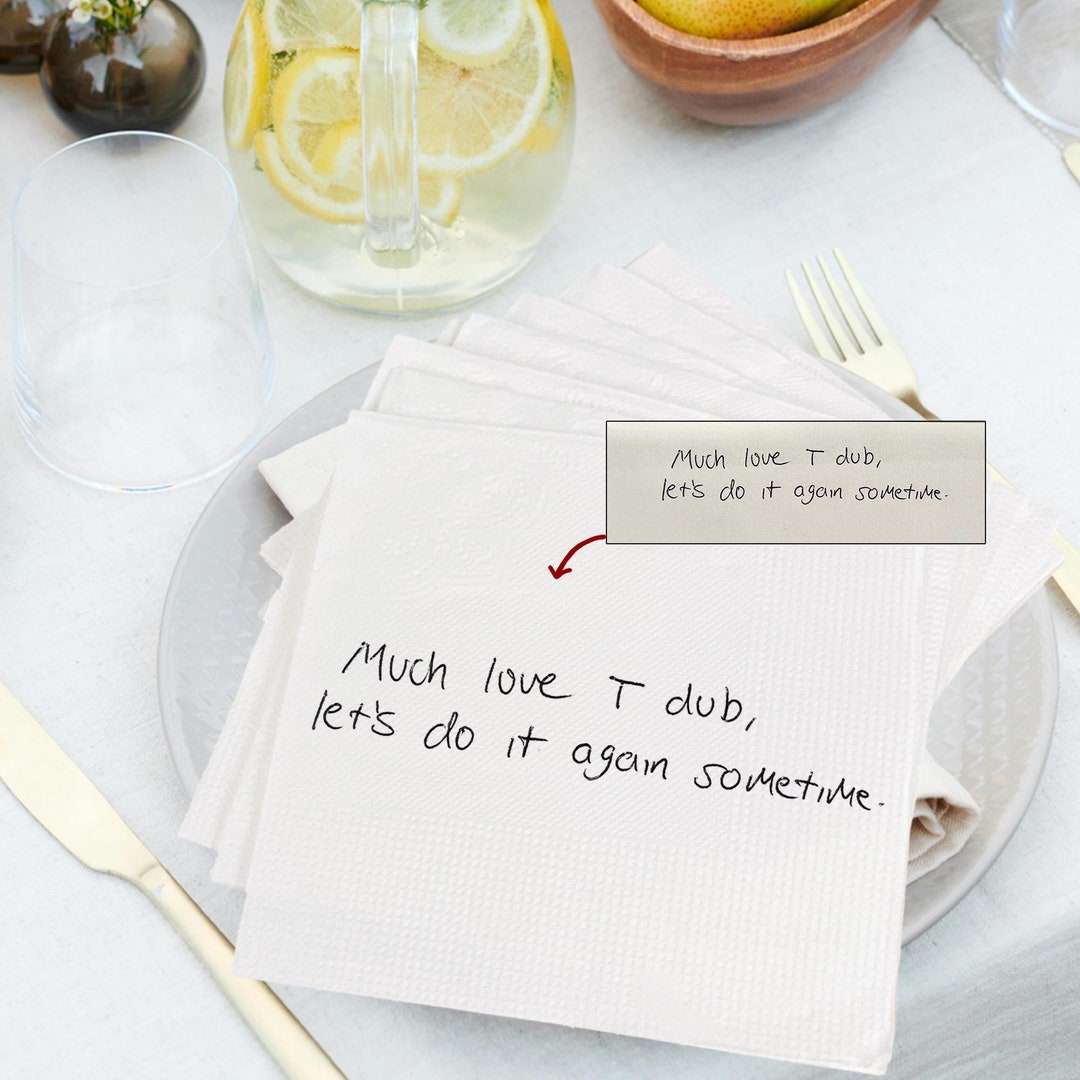 Much love T dub,
let's do it again sometime.
Much love T dub,
let's do it again sometime.